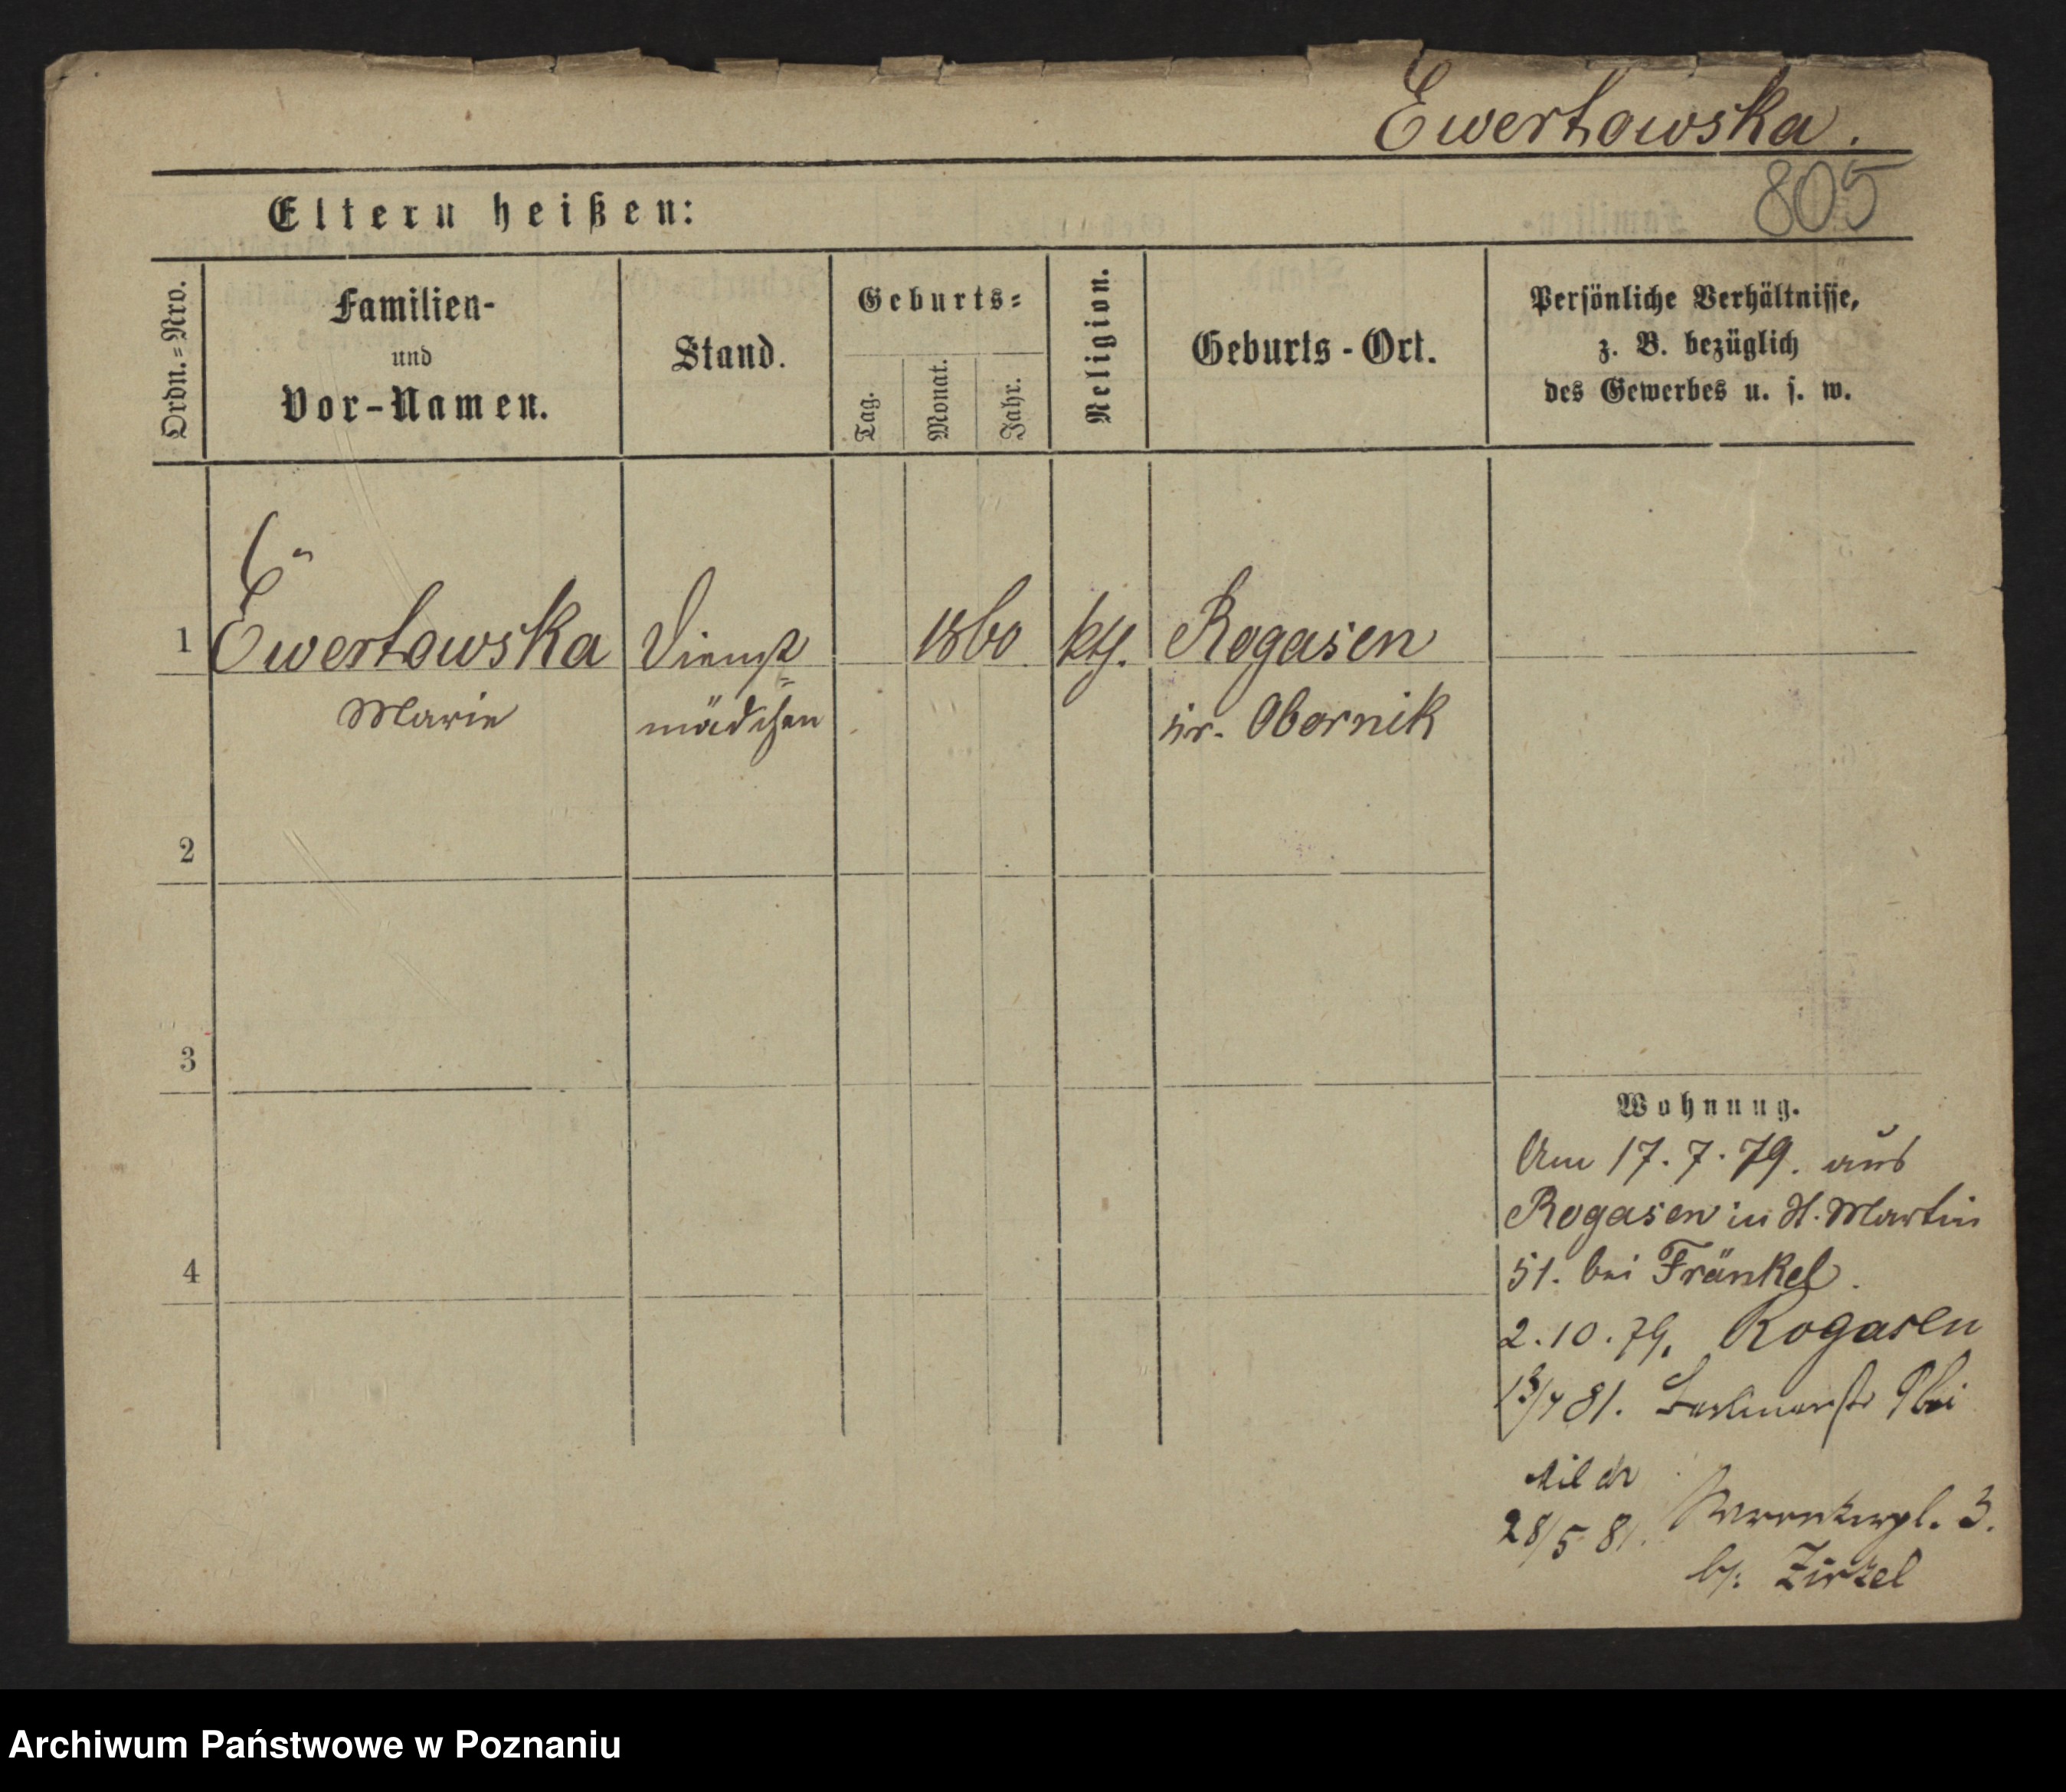 Ewertowska.
805
Eltern heißen:
Ordn.=Nro.
Familien-
und
Vor-Namen.
Stand.
Geburts=
Tag.
Monat.
Jahr.
Religion.
Geburts-Ort.
Persönliche Verhältnisse,
z. B. bezüglich
des Gewerbes u. s. w.
1
Ewertowska
Dienst=
1860
kth.
Rogasen
Marie
mädchen
Kr. Obornik
2
3
Wohnung.
Am 17.7.79. aus
Rogasen in St. Martin
4
51. bei Fränkel.
2.10.79. Rogasen
13/4 81. Berlinerstr 9 bei
28/5 81. 3.
b/: Zirkel
Archiwum Państwowe w Poznaniu